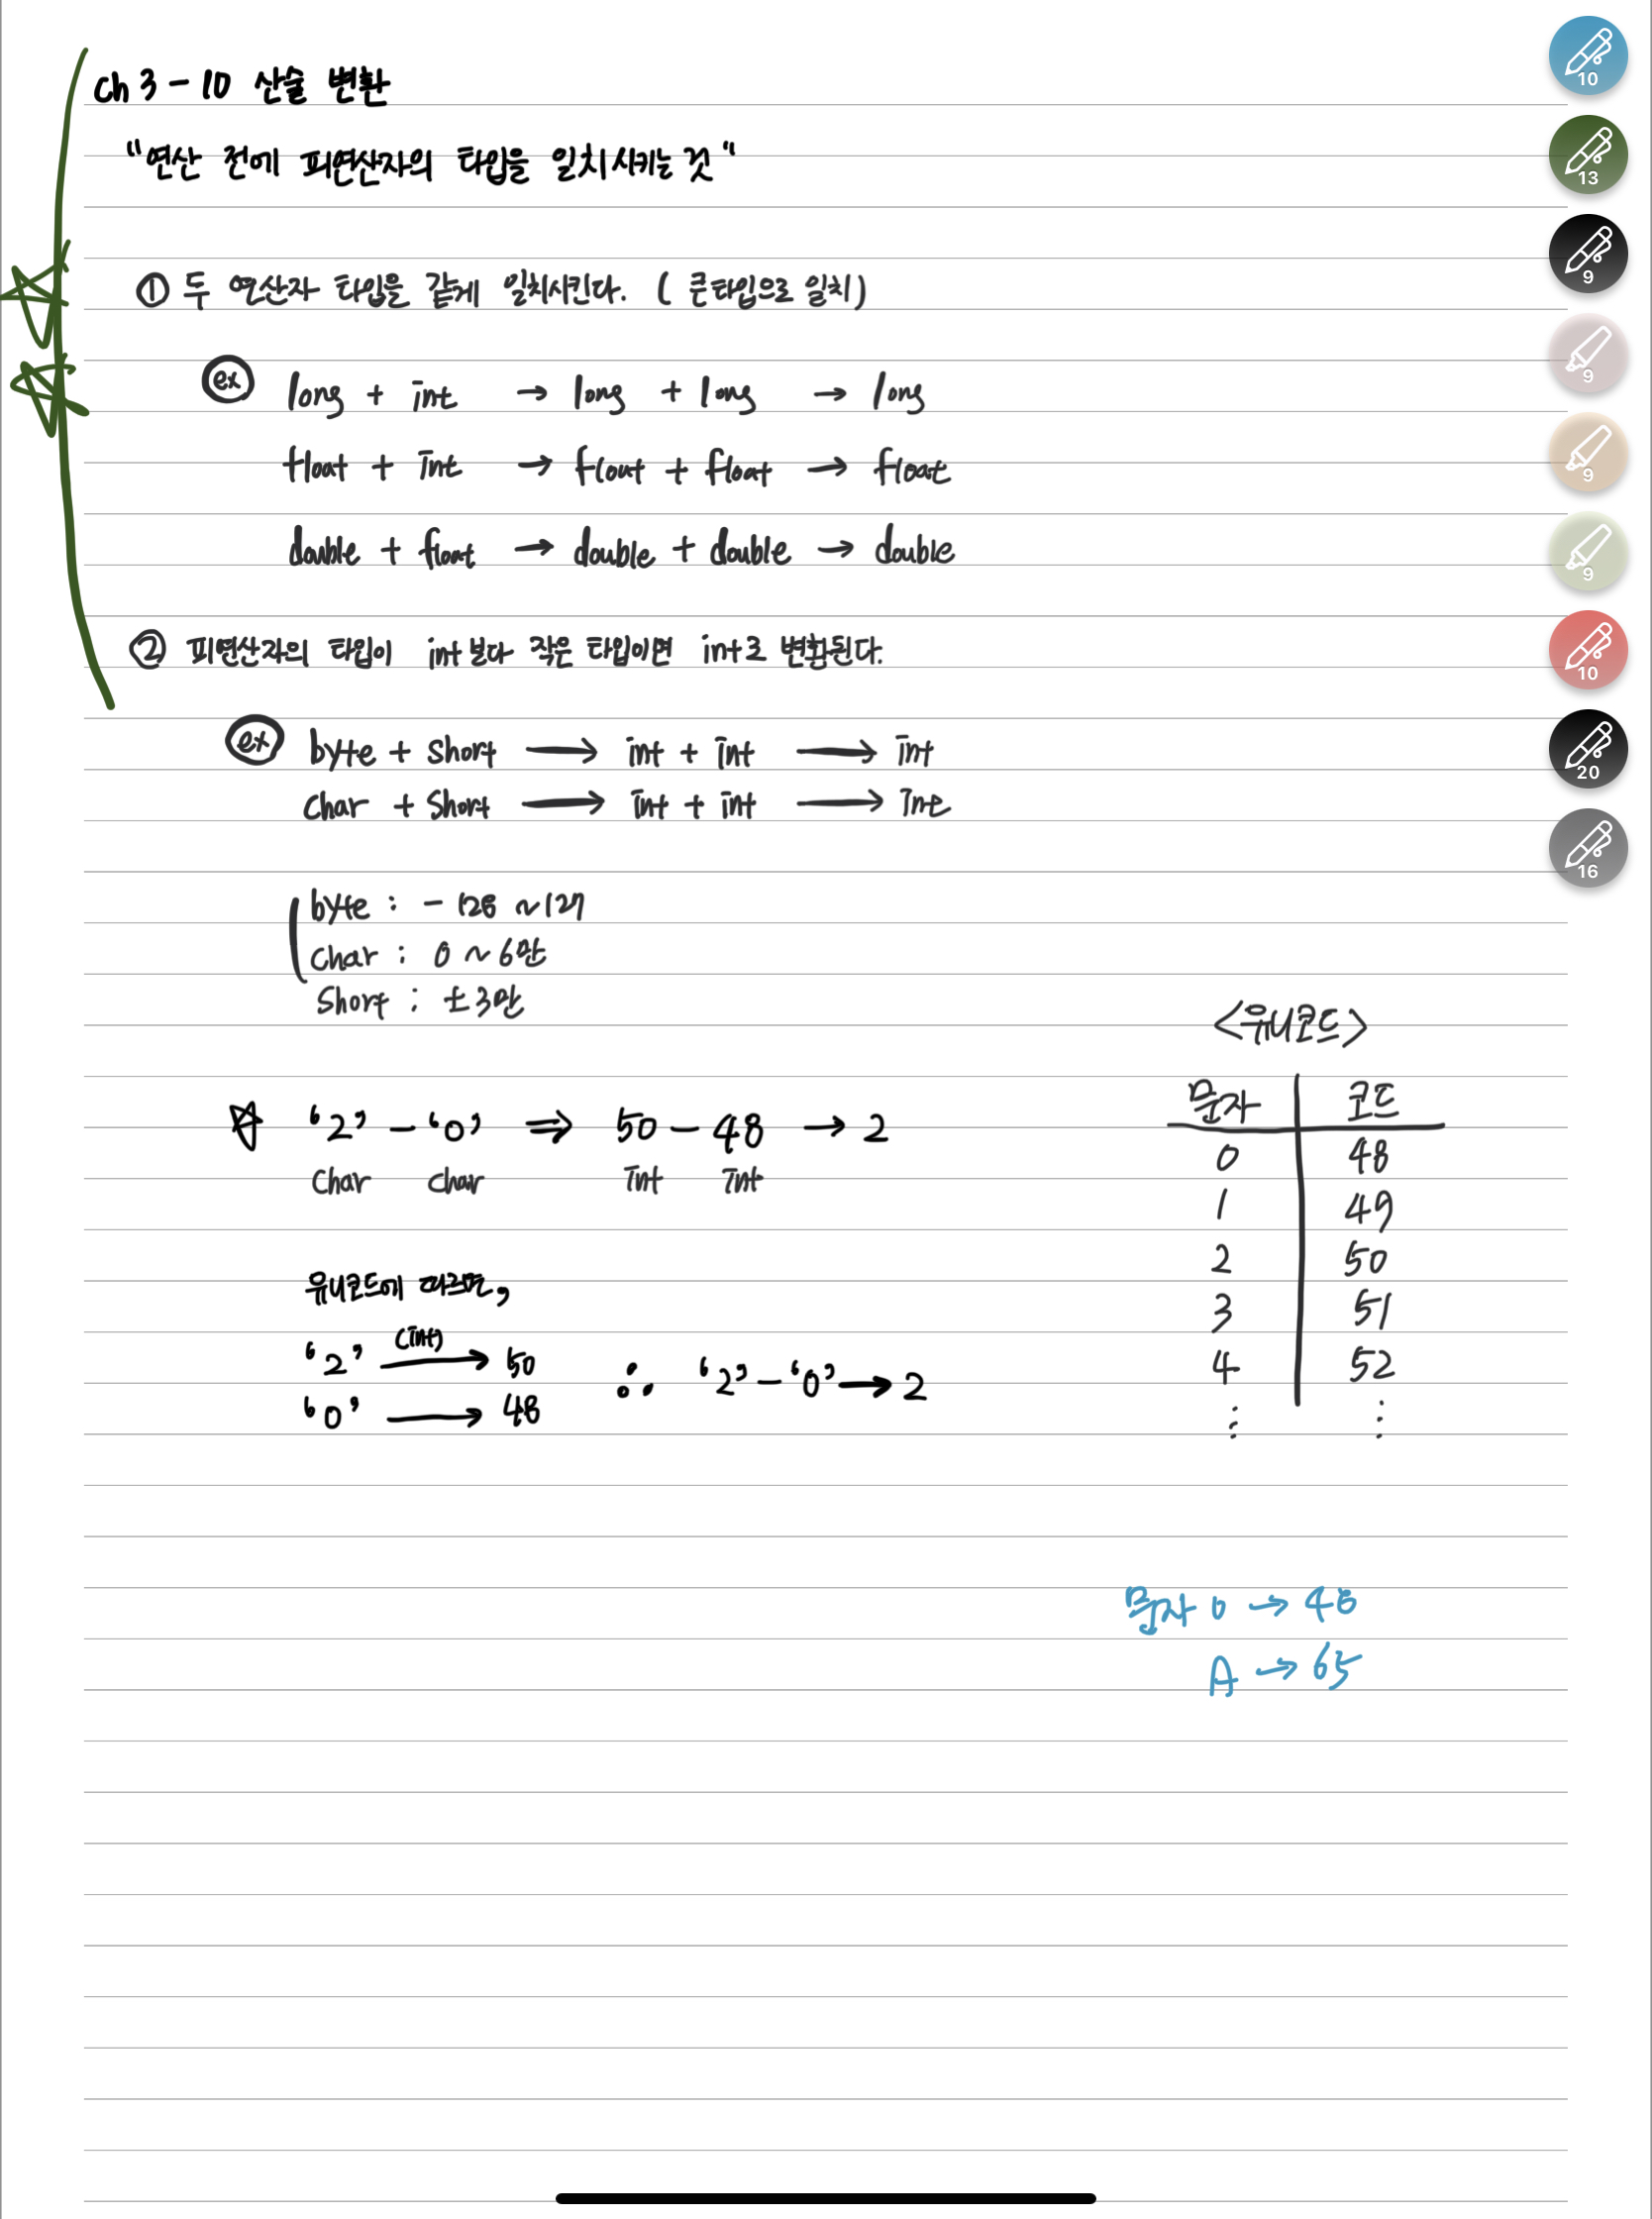 ch 3 - 10 산술 변환
"연산 전에 피연산자의 타입을 일치시키는 것"
① 두 연산자 타입을 같게 일치시킨다. ( 큰타입으로 일치)
ex long + int → long + long → long
float + int → float + float → float
double + float → double + double → double
② 피연산자의 타입이 int 보다 작은 타입이면 int로 변환된다.
ex byte + short → int + int → int
char + short → int + int → int
byte : - 128 ~ 127
char : 0 ~ 6만
short : ± 3만
<유니코드>
문자 코드
0 48
1 49
2 50
3 51
4 52
⋮ ⋮
☆ '2' - '0' ⇒ 50 - 48 → 2
char char int int
유니코드에 따르면,
(int)
'2' → 50
'0' → 48
∴ '2' - '0' → 2
문자 0 → 48
A → 65
10
13
9
9
9
9
10
20
16